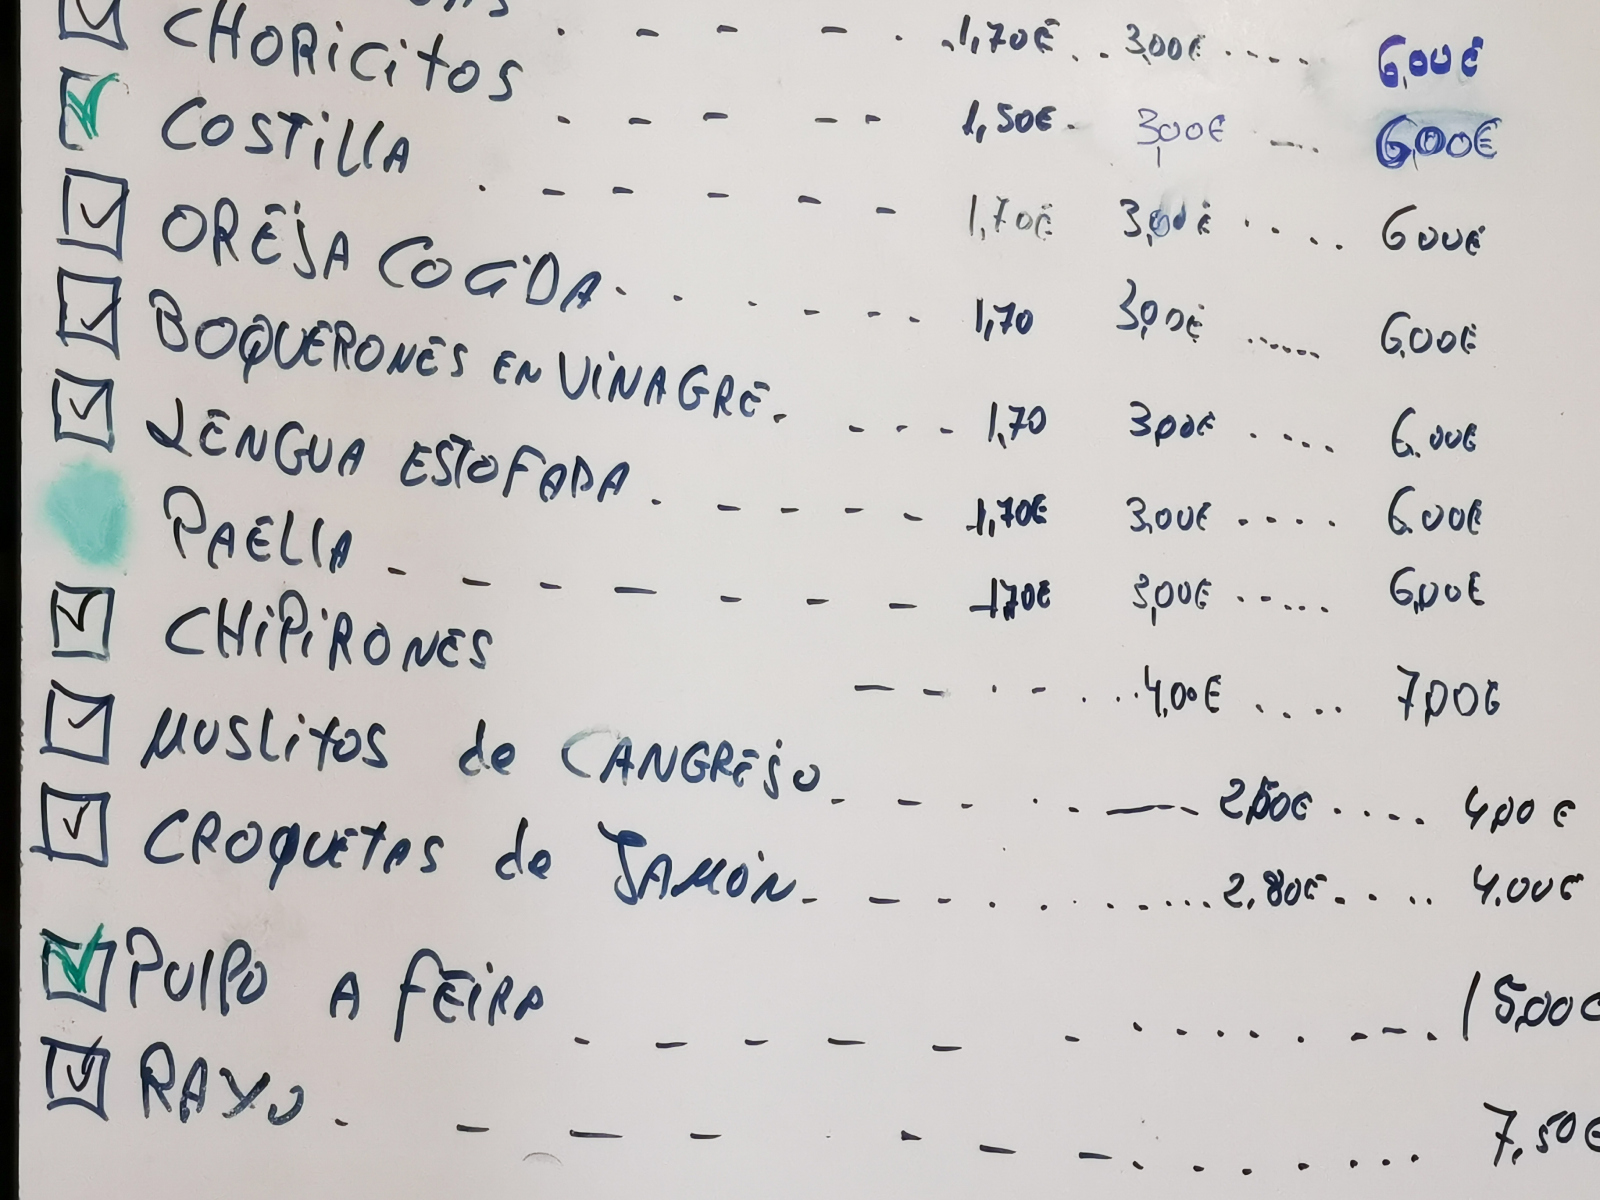 1,70€ .. 3,00€ ..... 6,00€
CHORiCitOS . - - - -- 1,50€. 3,00€ .... 6,00€
COSTillA . - - - - - 1,70€ 3,00€ ..... 6,00€
OREjA COCiDA . . . . - - - 1,70 3,00€ ...... 6,00€
BOQUERONES EN ViNAGRE. - - - 1,70 3,00€ ..... 6.00€
LENGUA ESTOFADA . - - - - 1,70€ 3,00€ ..... 6.00€
PAELLA - - - - - - - 1,70€ 3,00€ ...... 6,00€
CHiPiRONES - - . - ... 4,00€ ..... 7,00€
MUSLitOS de CANGREjO - - - . - — 2,50€ ..... 4,00 €
CROQUETAS de JAMÓN - - - . . . ...... 2,80€ ..... 4.00€
PULPO A FEiRA - - - - - . ...... --- . 15,00€
RAYO . - - - . - - - . ...... 7,50€